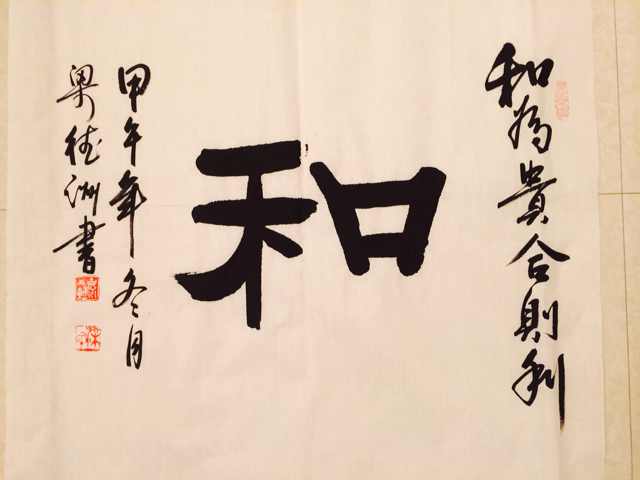 和為貴合則利
和
甲午年冬月
梁德洲書